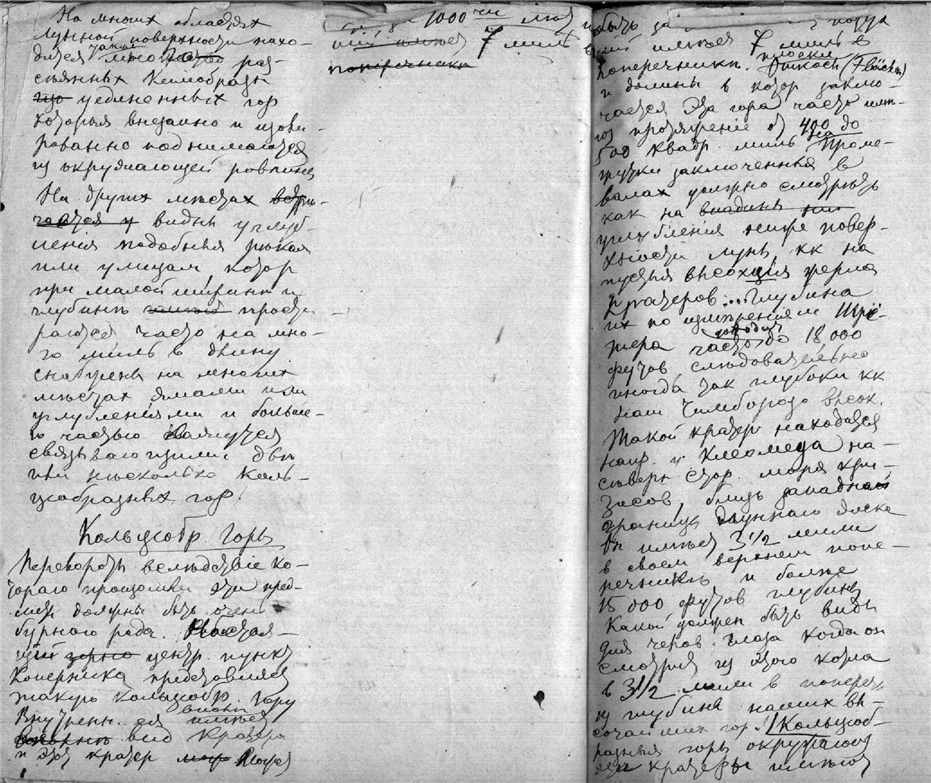 На многихъ областяхъ
лунной поверхности нахо-
дится много раз-
сѣянныхъ кеглообразн.
уединенныхъ гор
которыя внезапно и изоли-
рованно поднимаются
изъ окружающей равнины
На других мѣстахъ встрѣ-
чаются и видны углуб-
ленія подобныя рѣкам
или улицам, котор
при малой ширинѣ и
глубинѣ прости-
раются часто на мно-
го миль в длину.
снабжены на многих
мѣстах ямами или
углубленіями и больше-
ю частью являются
связывающими двѣ
или нѣсколько коль-
цеобразных гор.
Кольцеобр. горы
Переворотъ вслѣдствіе ко-
тораго произошли эти пред-
меты должен быть очень
бурнаго рода.
центр. пункт
Коперника представляет
такую кольцеобр. гору
Внутренн. ея имѣет
вид кратера
и этот кратер
1000 чи
7 миль
поперечника
7 миль в
поперечники. плоскости (Fläche)
и долины в котор заклю-
чается Эта гора часто имѣ-
ет протяженіе от 400 до
500 квадр. миль Проме-
жутки заключенные в
валах должно смотрѣть
как на впадины или
углубленія ниже повер-
хности луны, кк на
пустыя высохшія жерла
кратеров... Глубина
их по измѣреніям Шрё-
тера часто доходит до 18,000
футов, слѣдовательно
иногда так глубоки кк
наш Чимборозо высок.
Такой кратер находится
напр. у Клеомеда на-
сѣверн стор. моря кри-
зисов, близь западной
границы луннаго диска
Он имѣет 3 1/2 мили
в своем верхнем попе-
речникѣ и болѣе
15 000 футов глубины
Какой должен быть видъ
для челов. глаза когда он
смотрит из этого котла
в 3 1/2 мили в поперечн
из глубины наших вы-
сочайших гор! Кольцеоб-
разныя горы окружающ
эти кратеры имѣют